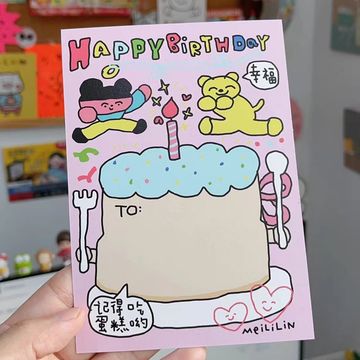 HAPPY BiRTHDAY
幸福
TO:
记得吃
蛋糕哟
MEiLiLiN